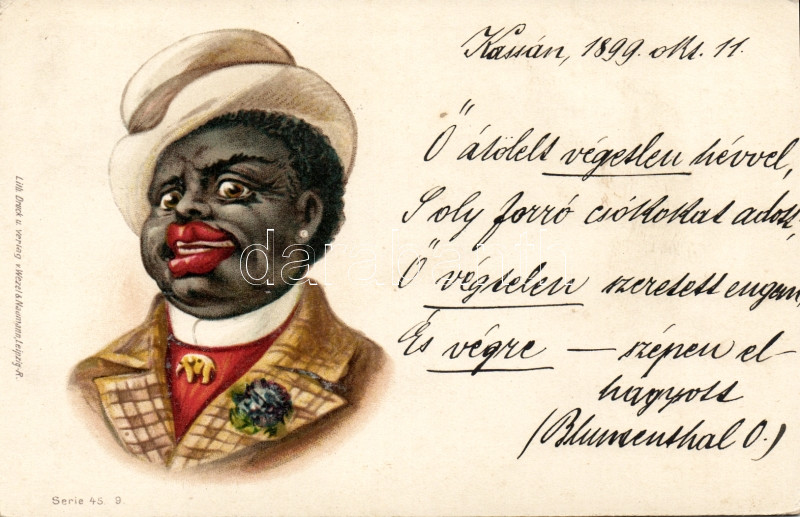 Kassán, 1899. okt. 11.
Ő átölelt végetlen hévvel,
S oly forró csókokat adott,
Ő végtelen szeretett engem,
És végre — szépen el-
hagyott
(Blumenthal O.)
Lith. Druck u. Verlag v. Wezel & Naumann, Leipzig-R.
Serie 45. 9.
darabanth